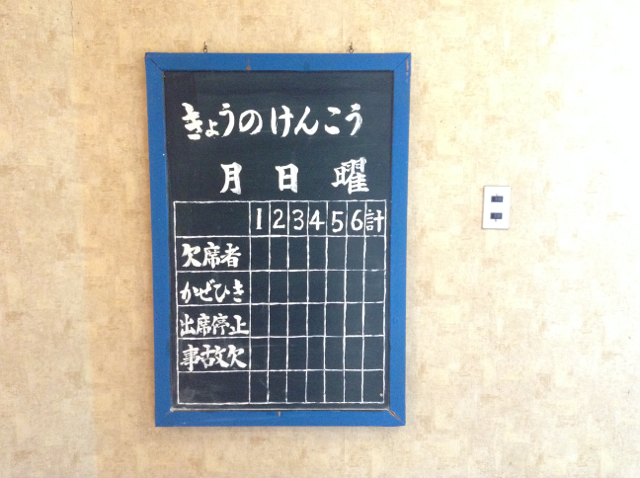 きょうのけんこう
月 日 曜
1 2 3 4 5 6 計
欠席者
かぜひき
出席停止
事故欠